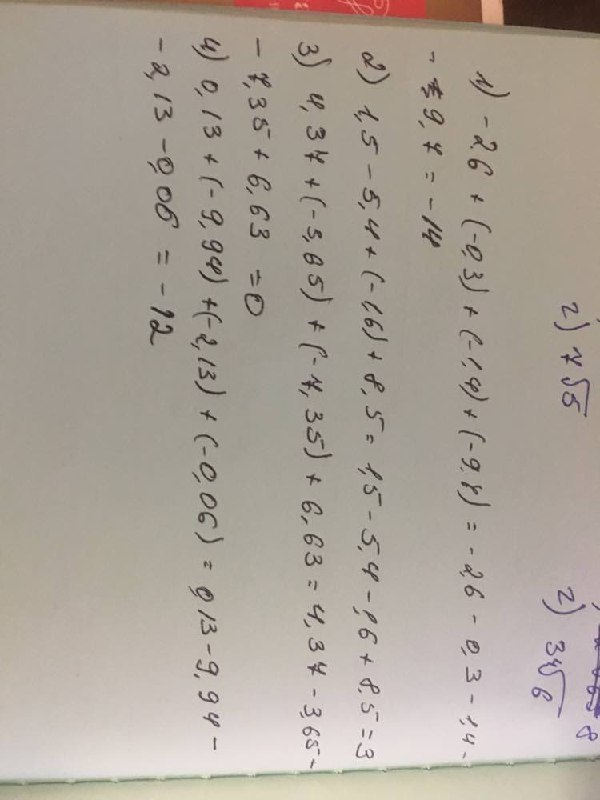 2) 7√5 2) 3√6
1) -2,6 + (-0,3) + (-1,4) + (-9,7) = -2,6 - 0,3 - 1,4 -
- 9,7 = -14
2) 1,5 - 5,4 + (-1,6) + 8,5 = 1,5 - 5,4 - 1,6 + 8,5 = 3
3) 4,37 + (-3,65) + (-7,35) + 6,63 = 4,37 - 3,65 -
- 7,35 + 6,63 = 0
4) 0,13 + (-9,94) + (-2,13) + (-0,06) = 0,13 - 9,94 -
- 2,13 - 0,06 = -12